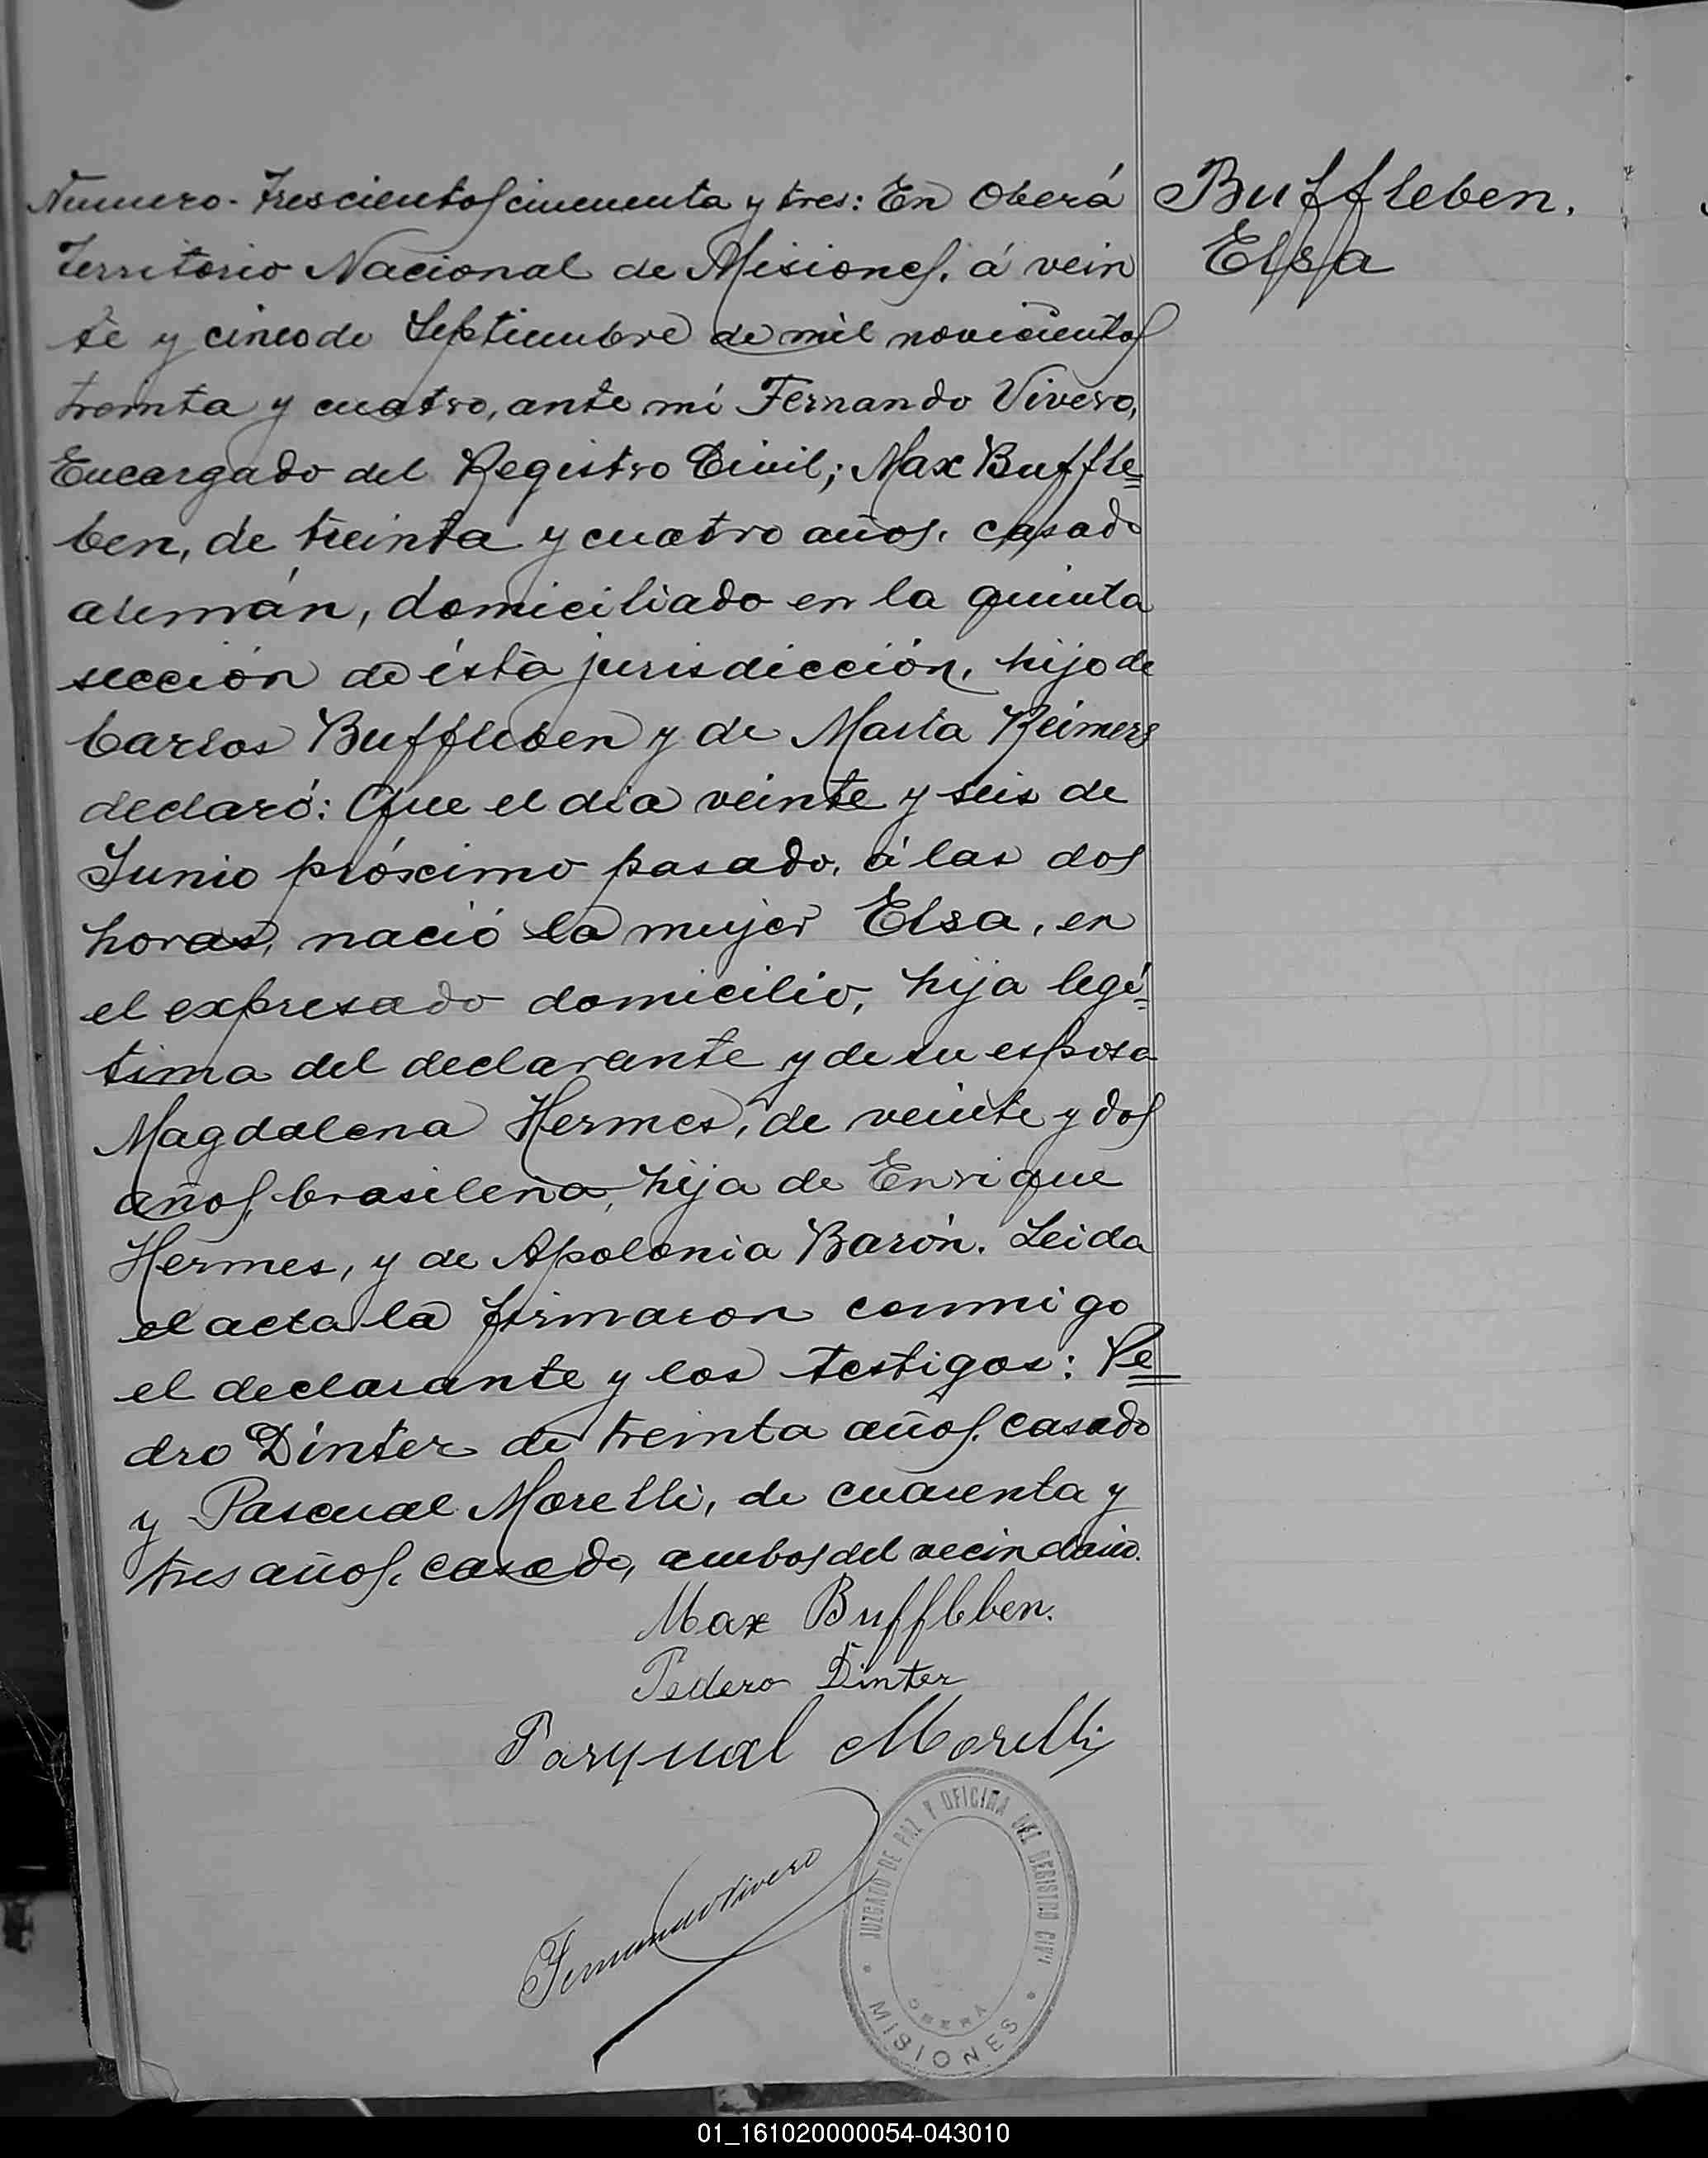 Numero. Trescientos cincuenta y tres: En Oberá
Territorio Nacional de Misiones, á vein
te y cinco de Septiembre de mil novecientos
treinta y cuatro, ante mi Fernando Vivero,
Encargado del Registro Civil; Max Buffle=
ben, de treinta y cuatro años, casado
alemán, domiciliado en la quinta
sección de ésta jurisdicción, hijo de
Carlos Buffleben y de Marta Reimers
declaró: Que el dia veinte y seis de
Junio próximo pasado, á las dos
horas, nació la mujer Elsa, en
el expresado domicilio, hija legí=
tima del declarante y de su esposa
Magdalena Hermes, de veinte y dos
años, brasileña, hija de Enrique
Hermes, y de Apolonia Barón. Leida
el acta la firmaron conmigo
el declarante y los testigos: Pe=
dro Dinter de treinta años, casado
y Pascual Morelli, de cuarenta y
tres años, casado, ambos del vecindario.
Max Buffleben.
Pedero Dinter
Pasqual Morelli
Fernando Vivero
JUZGADO DE PAZ Y OFICINA DEL REGISTRO CIVIL
OBERA
* MISIONES *
Buffleben.
Elsa
01_161020000054-043010